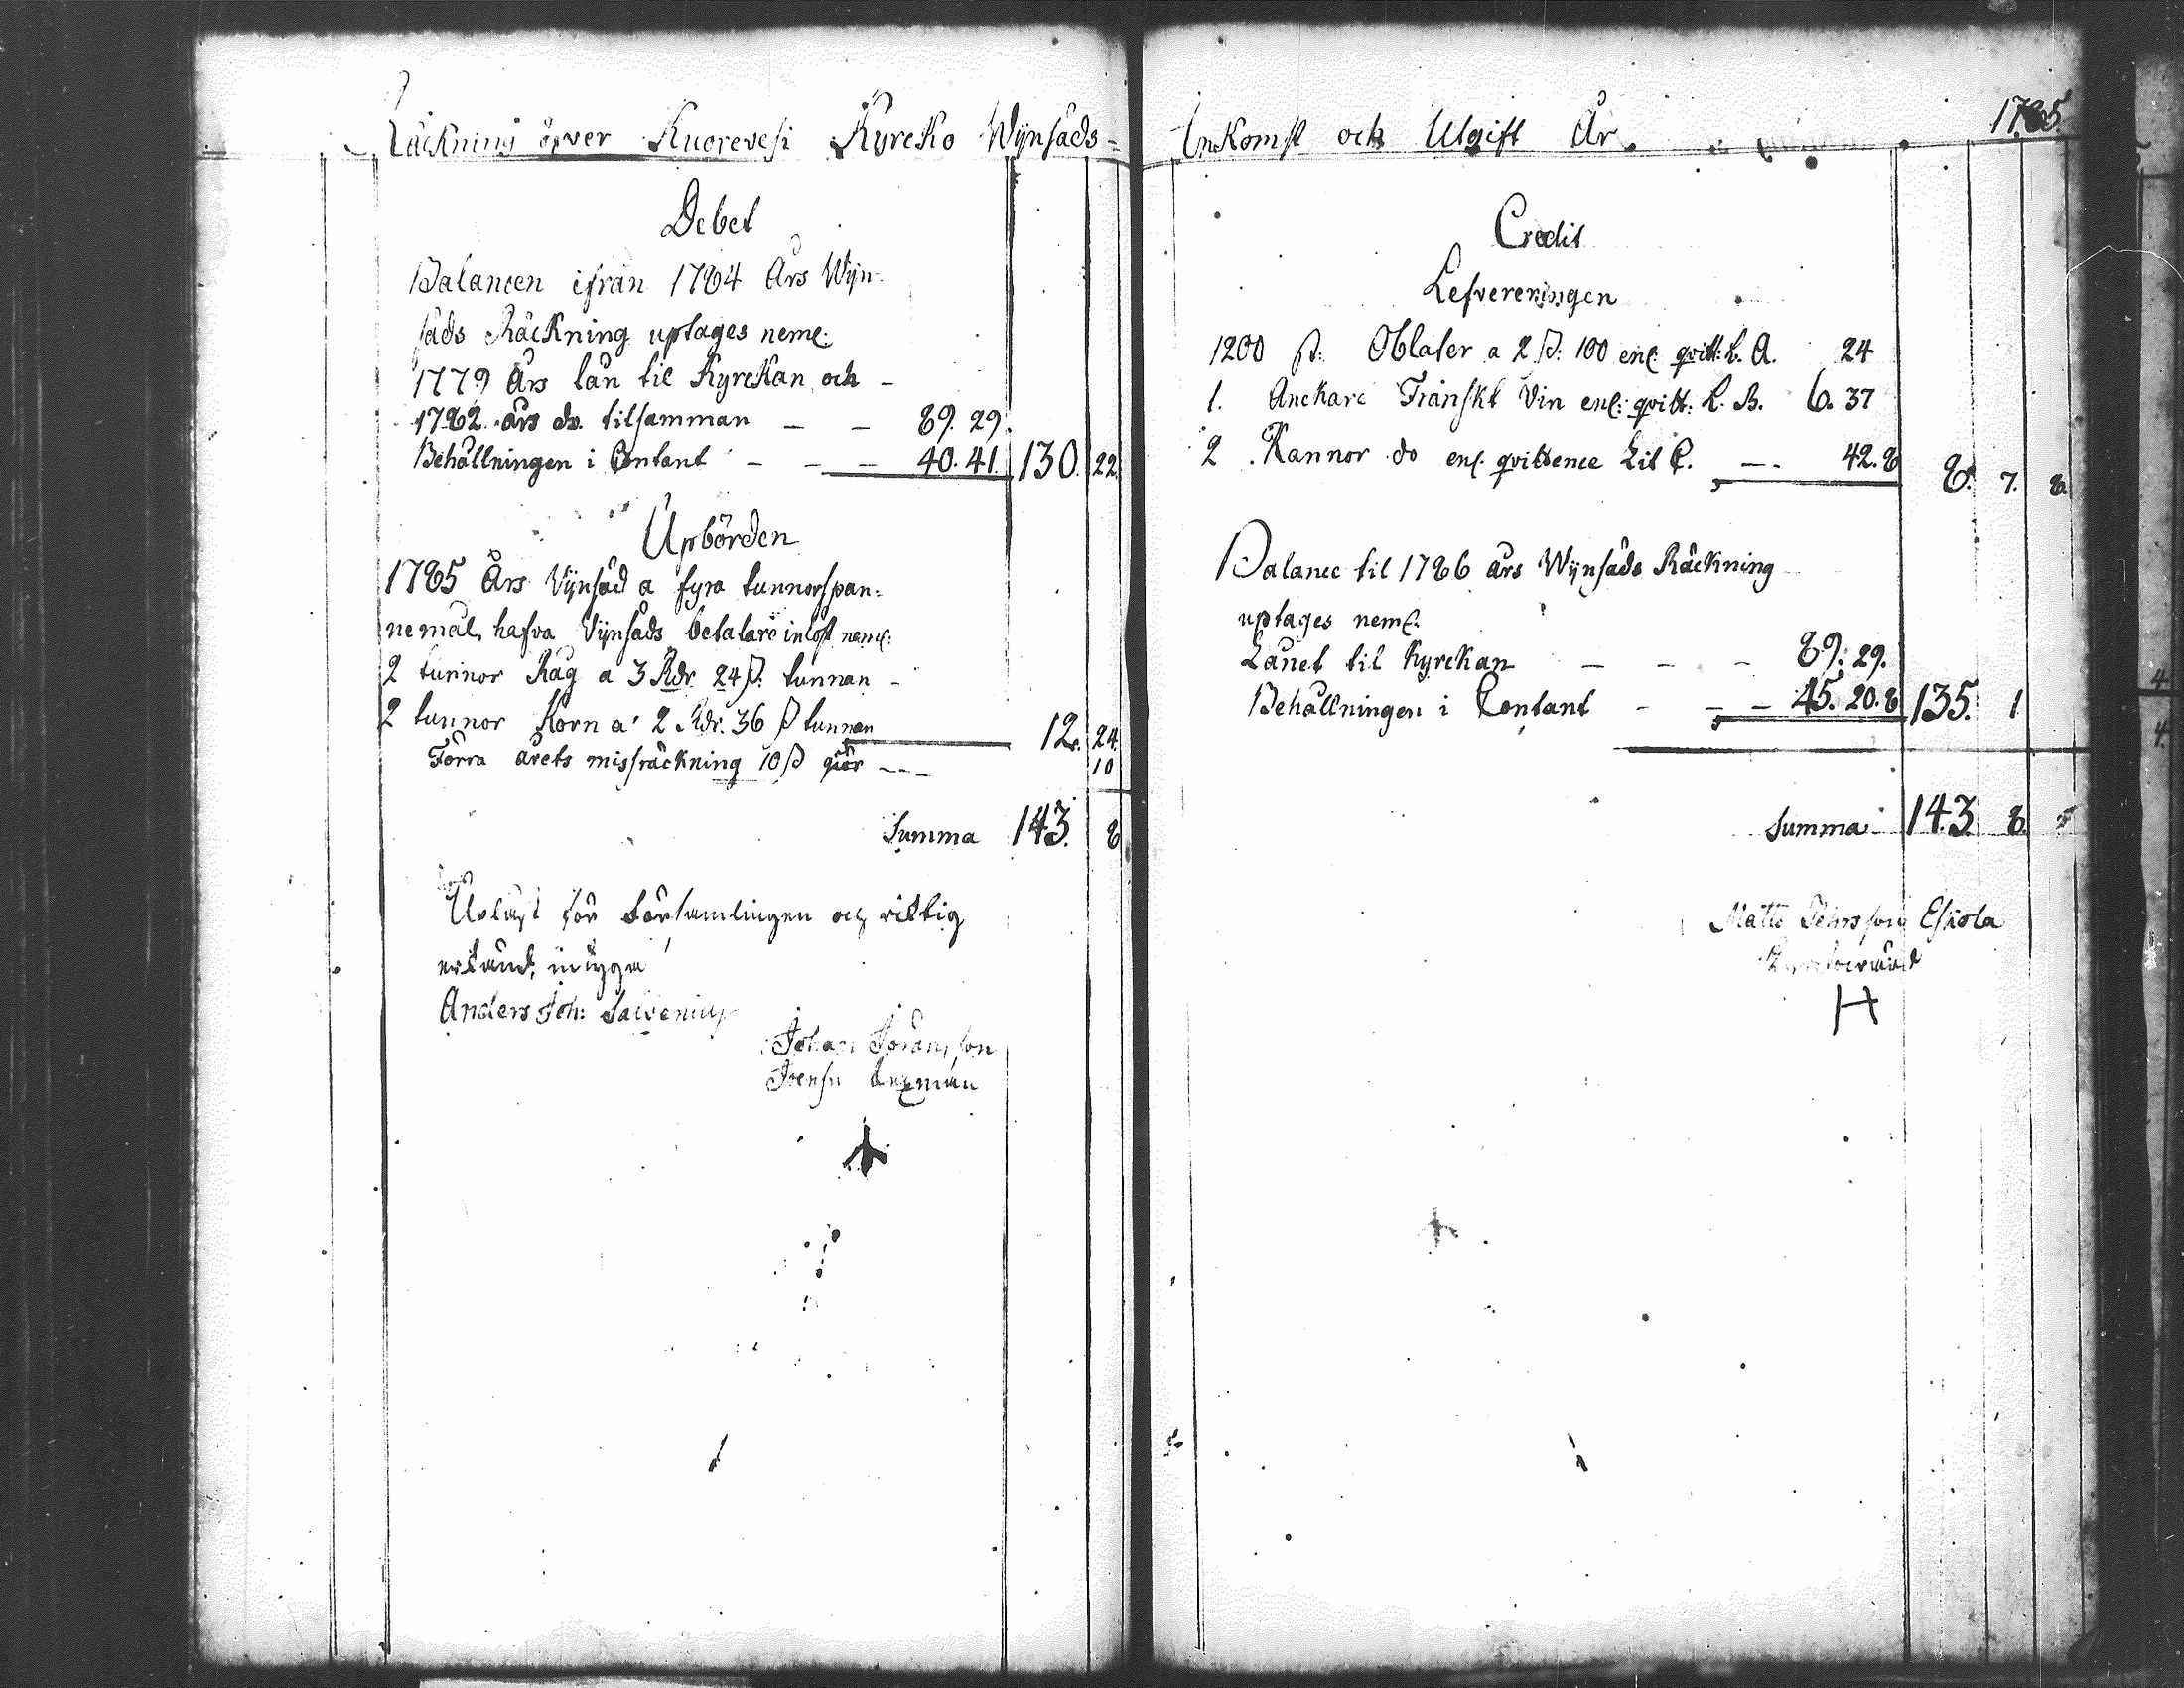 Räckning öfver Kuorevesi Kyrcko Wijnsäds-
Debet
Balancen ifrån 1784 Års Wijn-
säds Räckning uptages neml:
1779 Års lån til Kyrckan och -
1782 års do. tilsamman - - 89. 29.
Behållningen i Contant - - - 40. 41. 130. 22.
Upbörden
1785 Års Vijnsäd a fyra tunnor span-
nemål, hafva Vijnsäds betalare inlöst neml:
2 tunnor Råg a 3 Rdr. 24 ß: tunnan -
2 tunnor Korn a' 2 Rdr. 36 ß tunnan 12. 24.
Förra årets missräckning 10 ß giör --- 10
Summa 143. 8
Upläst för Församlingen och richtig
erkänd, intyga
Anders Joh: Salvenius
Johan Göransson
Joensu
Inkomst och Utgift År 1785.
Credit
Lefvereringen
1200 st: Oblater a 2 ß: 100 enl: qvitt: L. A. 24
1. Anckare Franskt Vin enl: qvitt: L. B. 6. 37
2 Kannor do enl. qvittence Lit C. --- 42. 8 8. 7. 8.
Balance til 1786 års Wijnsäds Räckning
uptages neml.
Lånet til Kyrckan - - - 89. 29.
Behållningen i Contant - - - 45. 20. 8 135. 1
Summa 143. 8.
Matts Eskola
H